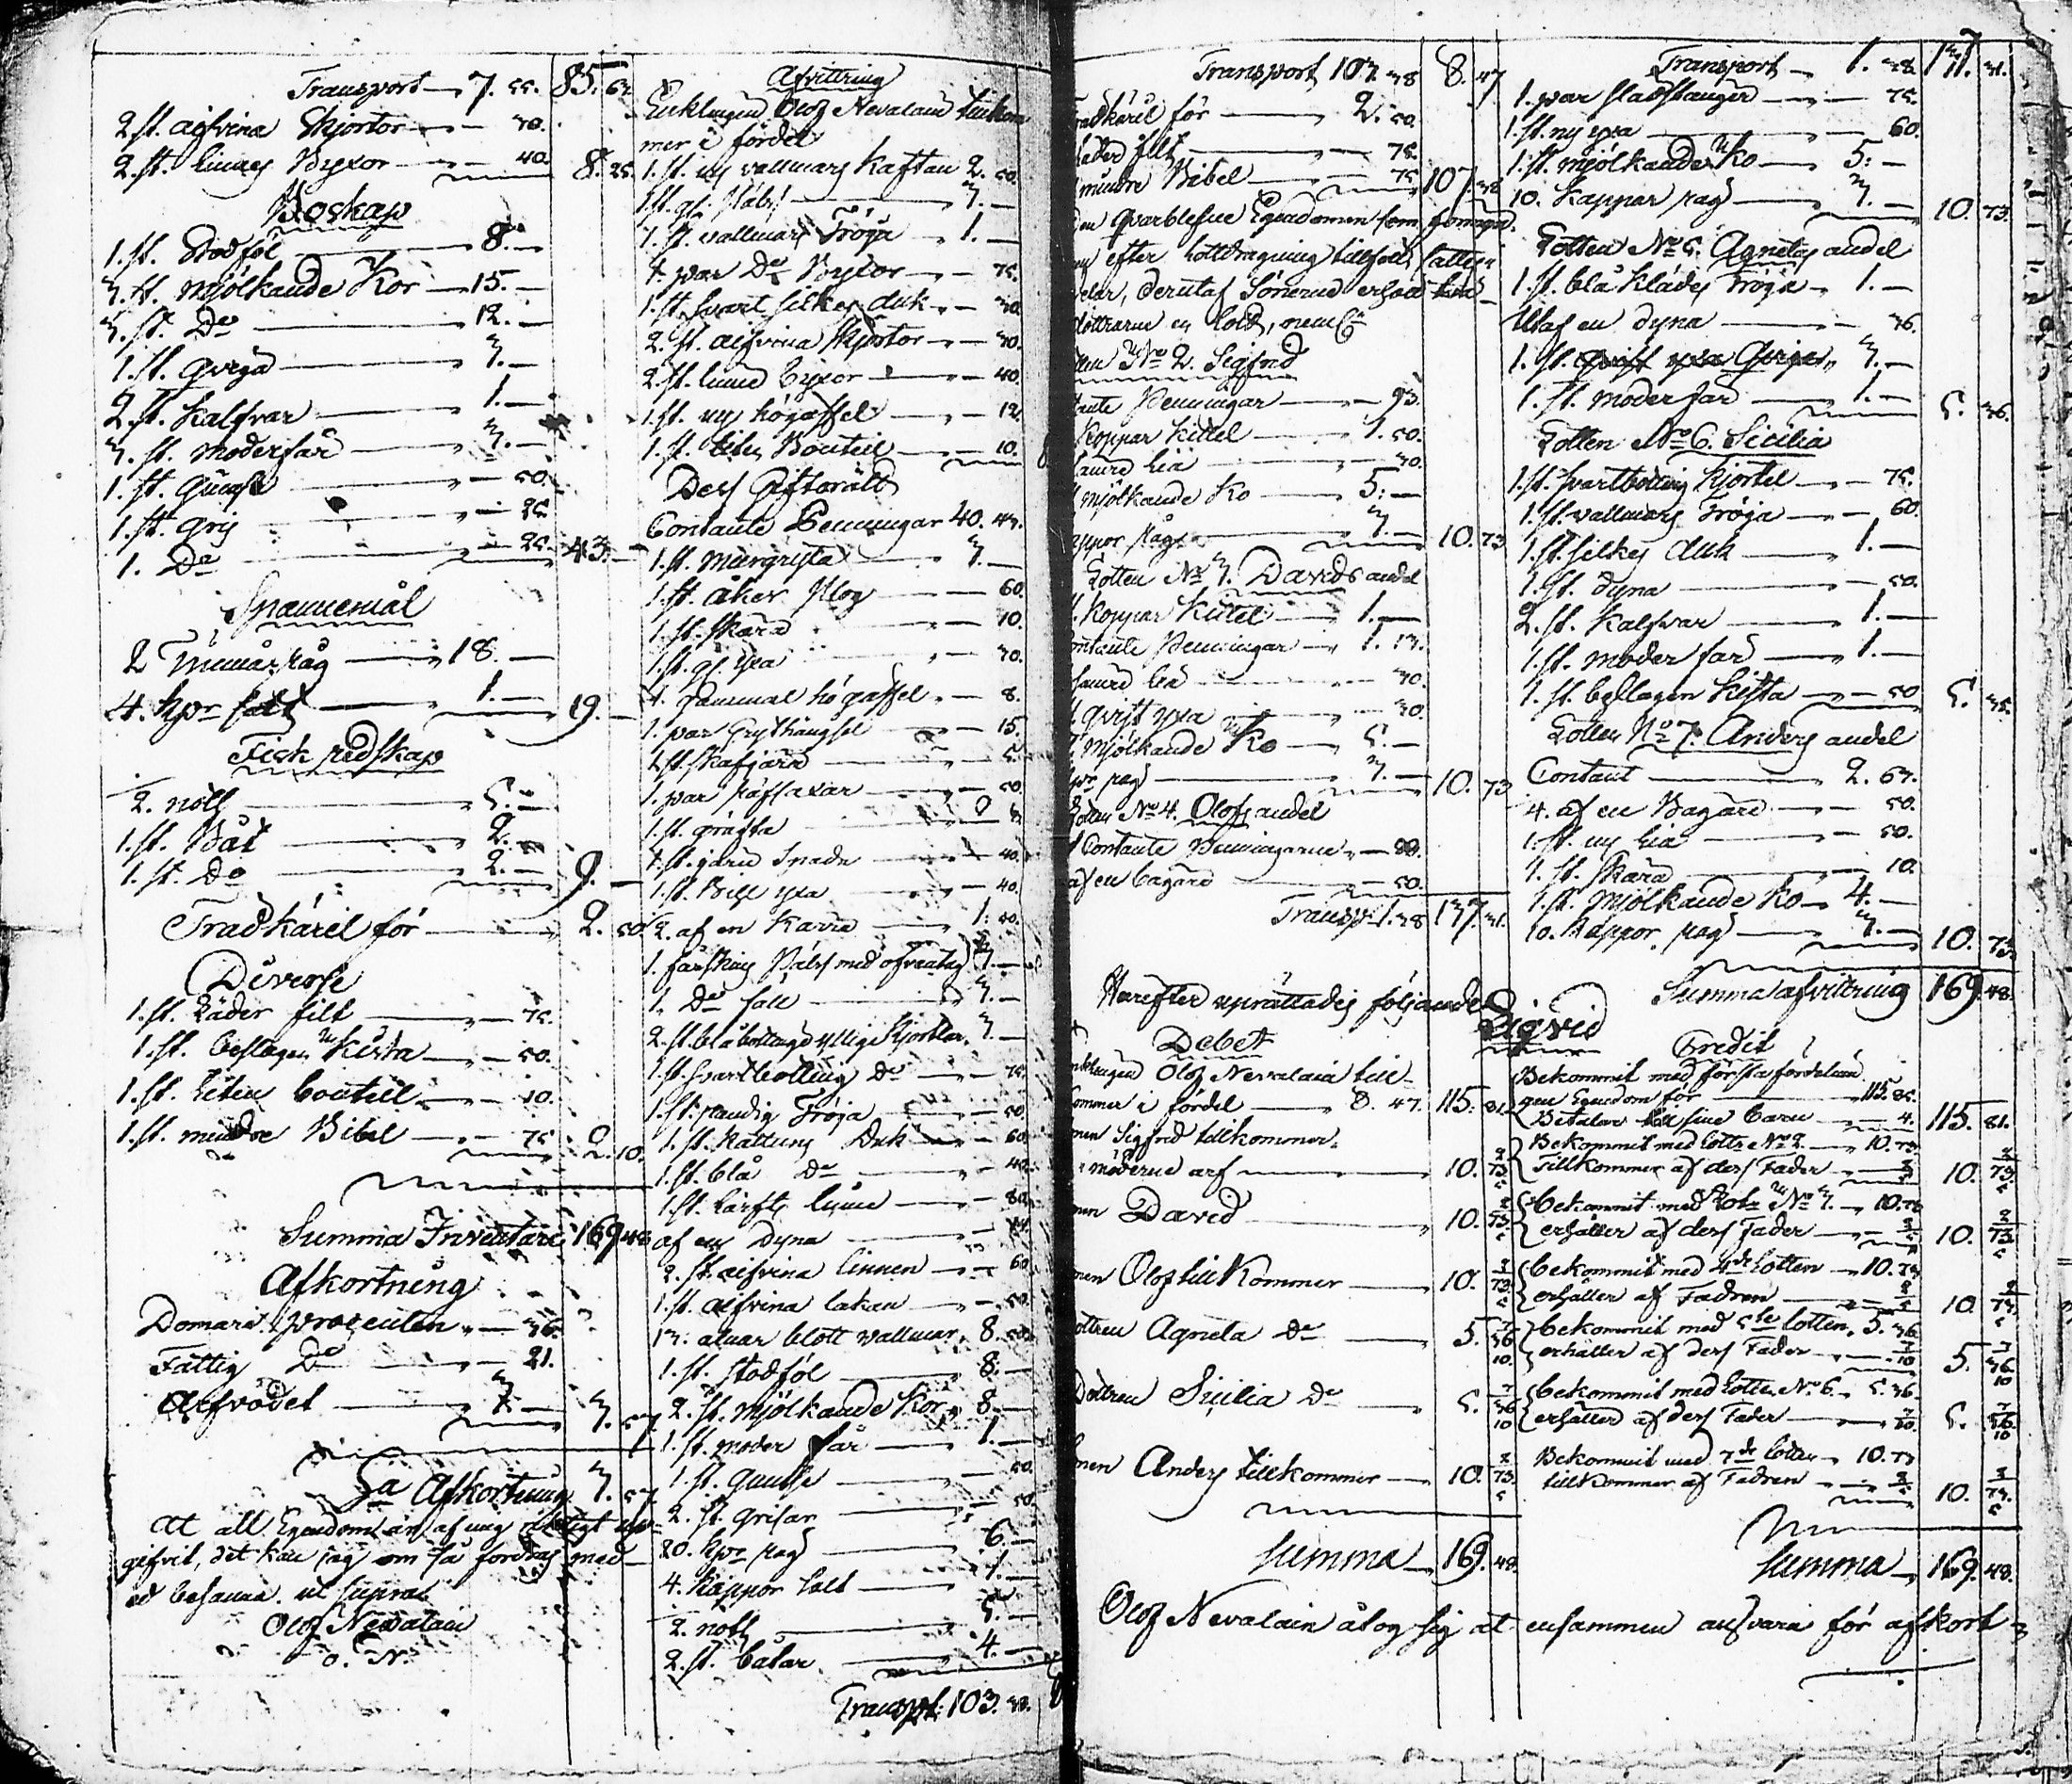 Transport 7. 55. 85. 62
2 st. aifvina Skjortor 30.
2. st. linnes Byxor 40. 8. 25.
Boskap
1. st. Stodföl 8. —
3. st. mjölkande Kor 15. —
3. st. Do 12. —
1. st. qviga 3. —
2. st. Kalfvar 1. —
3. st. moderfår 3. —
1. st. Gumse 50.
1. st. gris 25.
1. Do 25. 43. —
Spannemål
2 Tunnår råg 18. —
4. Kpr salt 1. — 19. —
Fisk redskap
2. nöth 5. —
1. st. Båt 2. —
1. st. Do 2. — 9. —
Trädkäril för 2. 50
Diverse
1. st. Läder filt 75.
1. st. beslagen Kista 50.
1. st. Liten bouteill 10.
1. st. mindre Bibel 75. 2. 10.
Summa Inventarii 169. 48
Afkortning
Domare procenten 36.
Fattig Do 21.
Arfvodet 3. — 3. 57
Sa Afkortning 3. 57
At all Egendom är af mig riktigt upp-
gifvit, det kan jag om så fordras med
ed besanna. ut supra
Olof Nevalain
O. N.
Afvittring
Enklingen Olof Nevalain tillkom
mer i fördel
1. st. ny vallmars Kaftan 2. 50.
1. st. gl. Päls 3. —
1. st. vallmars Tröja 1. —
1. par Do Byxor 75.
1. st. svart silkes duk 30.
2. st. aifvina Skjortor 30.
2. st. linne Byxor 40.
1. st. ny högaffel 12
1. st. liten Bouteil 10.
Dess Giftorätt
Contante Penningar 40. 43.
1. st. Murgryta 3. —
1. st. åker Plog 60.
1. st. Skära 10.
1. st. gl. yxa 30.
1. gammal högaffel 8.
1. par Grythängsel 15.
1. st. skafjärn 5.
1. par råfsaxar 50.
1. st. gräfta
1. st. järn Spade 40.
1. st. Bill yxa 40.
2. af en Kärra 1. 50.
1. fårskins Päls med öfvertag 3. —
1. Do fall 3. —
2. st. blåbottnige yllige Kjortlar 3. —
1. st. svartbotting Do 75.
1. st. randig Tröja 50
1. st. Kattuns Duk 60.
1. st. blå Do 40.
1. st. Lärfts linne 80.
af en Dyna
2. st. aifvina linnen 60
1. st. aifvina lakan 50.
13. alnar blott vallmar 8. 50.
1. st. stodföl 8. —
2. st. Mjölkande Kor 8. —
1. st. moder får 1. —
1. st. Gumse 50.
2. st. grisar 50.
20. Kpr råg 6. —
4. Kappor Salt 1. —
2. noth 5. —
2. st. båtar 4. —
Transpt. 103. 38.
Transport 103. 38 8. 47
Trädkäril för 2. 50
Läder filt 75.
mindre Bibel 75 107. 38
Den qvarblefne Egendomen som genom
efter Lottdragning tillföll
delar, derutaf Sönerne
döttrarne en Lott, neml.
No 2. Sigfrid
Contante Penningar 93.
Koppar Kittel 1. 50.
lia 30.
mjölkande Ko 5: —
Kappor Råg 3. — 10. 73
Lotten No 3. Davids andel
Koppar Kittel 1. —
Contante Penningar 1. 13.
lia 30.
1. qvist yxa 30.
Mjölkande Ko 5. —
Kpr råg 3. — 10. 73
Lotten No 4. Olofs andel
Contante Penningarne 88.
af en bagare 50.
Transp. 1. 38 137. 31.
Transport 1. 38 137. 31.
1. par slädstänger 75.
1. st. ny yxa 60.
1. st. mjölkande Ko 5: —
10. Kappar råg 3. — 10. 73.
Lotten No 5. Agnetas andel
1. st. blå Klädes Tröja 1. —
Utaf en dyna 36.
1. st. qviga 3. —
1. st. moder får 1. — 5. 36.
Lotten No 6. Sicilia
1. st. svartbotting Kjortel 75.
1. st. vallmars Tröja 60.
1. st. silkes duk 1. —
1. st. dyna 50.
2. st. Kalfvar 1. —
1. st. moder får 1. —
1. st. beslagen Kista 50 5. 35.
Lotten No 7. Anders andel
Contant 2. 63.
4. af en Bagare 50.
1. st. ny lia 50.
1. st. Skära 10.
1. st. Mjölkande Ko 4. —
10. Kappor råg 3. — 10. 73.
Summa afvittring 169. 48.
Härefter upprättades följande Liqvid
Debet
Enklingen Olof Nevalain till-
kommer i fördel 8. 47. 115. 81.
Sonen Sigfrid tillkommer
möderne arf 10. 73 2/5
David 10. 73 2/5
Olof tillkommer 10. 73 2/5
Dottren Agneta Do 5. 36 7/10
Dottren Sicilia Do 5. 36 7/10
Sonen Anders tillkommer 10. 73 2/5
Summa 169. 48.
Credit
Bekommit med första fördelnin
gen Egendom för 115. 85.
Betalar till sine barn 4. 115. 81.
Bekommit med Lotten No 2. 10. 73.
Tillkommer af dess Fader 2/5 10. 73 2/5
bekommit med Lotten No 3. 10. 73
erhåller af dess Fader 2/5 10. 73 2/5
bekommit med 4de Lotten 10. 73
erhåller af Fadren 2/5 10. 73 2/5
bekommit med 5te lotten 5. 36
erhåller af dess Fader 7/10 5. 36 7/10
bekommit med Lotten No 6. 5. 36.
erhåller af dess Fader 7/10 5. 36 7/10
Bekommit med 7de lotten 10. 73
tillkommer af Fadren 2/5 10. 73 2/5
Summa 169. 48.
Olof Nevalain åtog sig at ensammen ansvara för afkort-